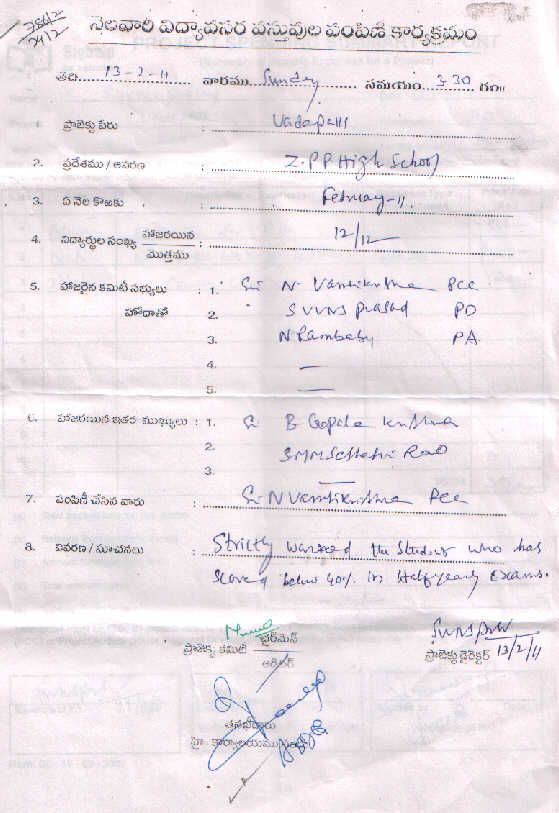 3842
2412
నెలవారి విద్యావసర వస్తువుల పంపిణి కార్యక్రమం
తేది 13-2-11 వారము Sunday సమయం 3.30 గం॥
1. ప్రాజెక్టు పేరు : Vadapalli
2. ప్రదేశము / ఆవరణ : Z.P.P High School
3. ఏ నెల కొఱకు : February-11.
4. విద్యార్థుల సంఖ్య హాజరయిన / మొత్తము : 12/12
5. హాజరైన కమిటీ సభ్యులు : 1. Sri N. Vamsikrishna PCC
హోదాతో 2. SVVNS Prasad PD
3. N Rambabu PA
4. —
5. —
6. హాజరయిన ఇతర ముఖ్యులు : 1. Sri B Gopala Krishna
2. Rao
3. —
7. పంపిణి చేసిన వారు : Sri N Vamsikrishna PCC
8. వివరణ / సూచనలు : Strictly warned the student who has
scored below 40% in Half yearly Exams.
ప్రాజెక్టు కమిటి చైర్‌మెన్
ప్రాజెక్టు డైరెక్టర్ 13/2/11
తనిఖీదారు
హె. కార్యాలయము